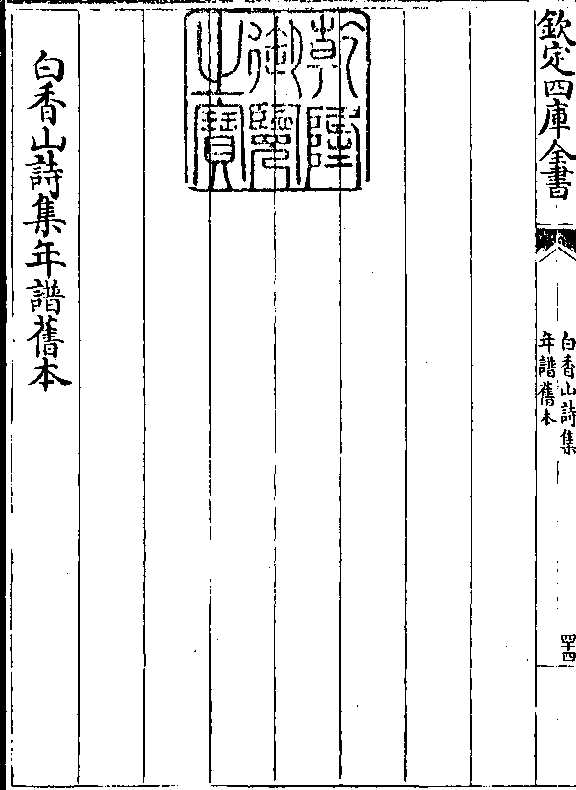 欽定四庫全書
白香山詩集
年譜舊本
四十四
乾隆
御覽
之寶
白香山詩集年譜舊本